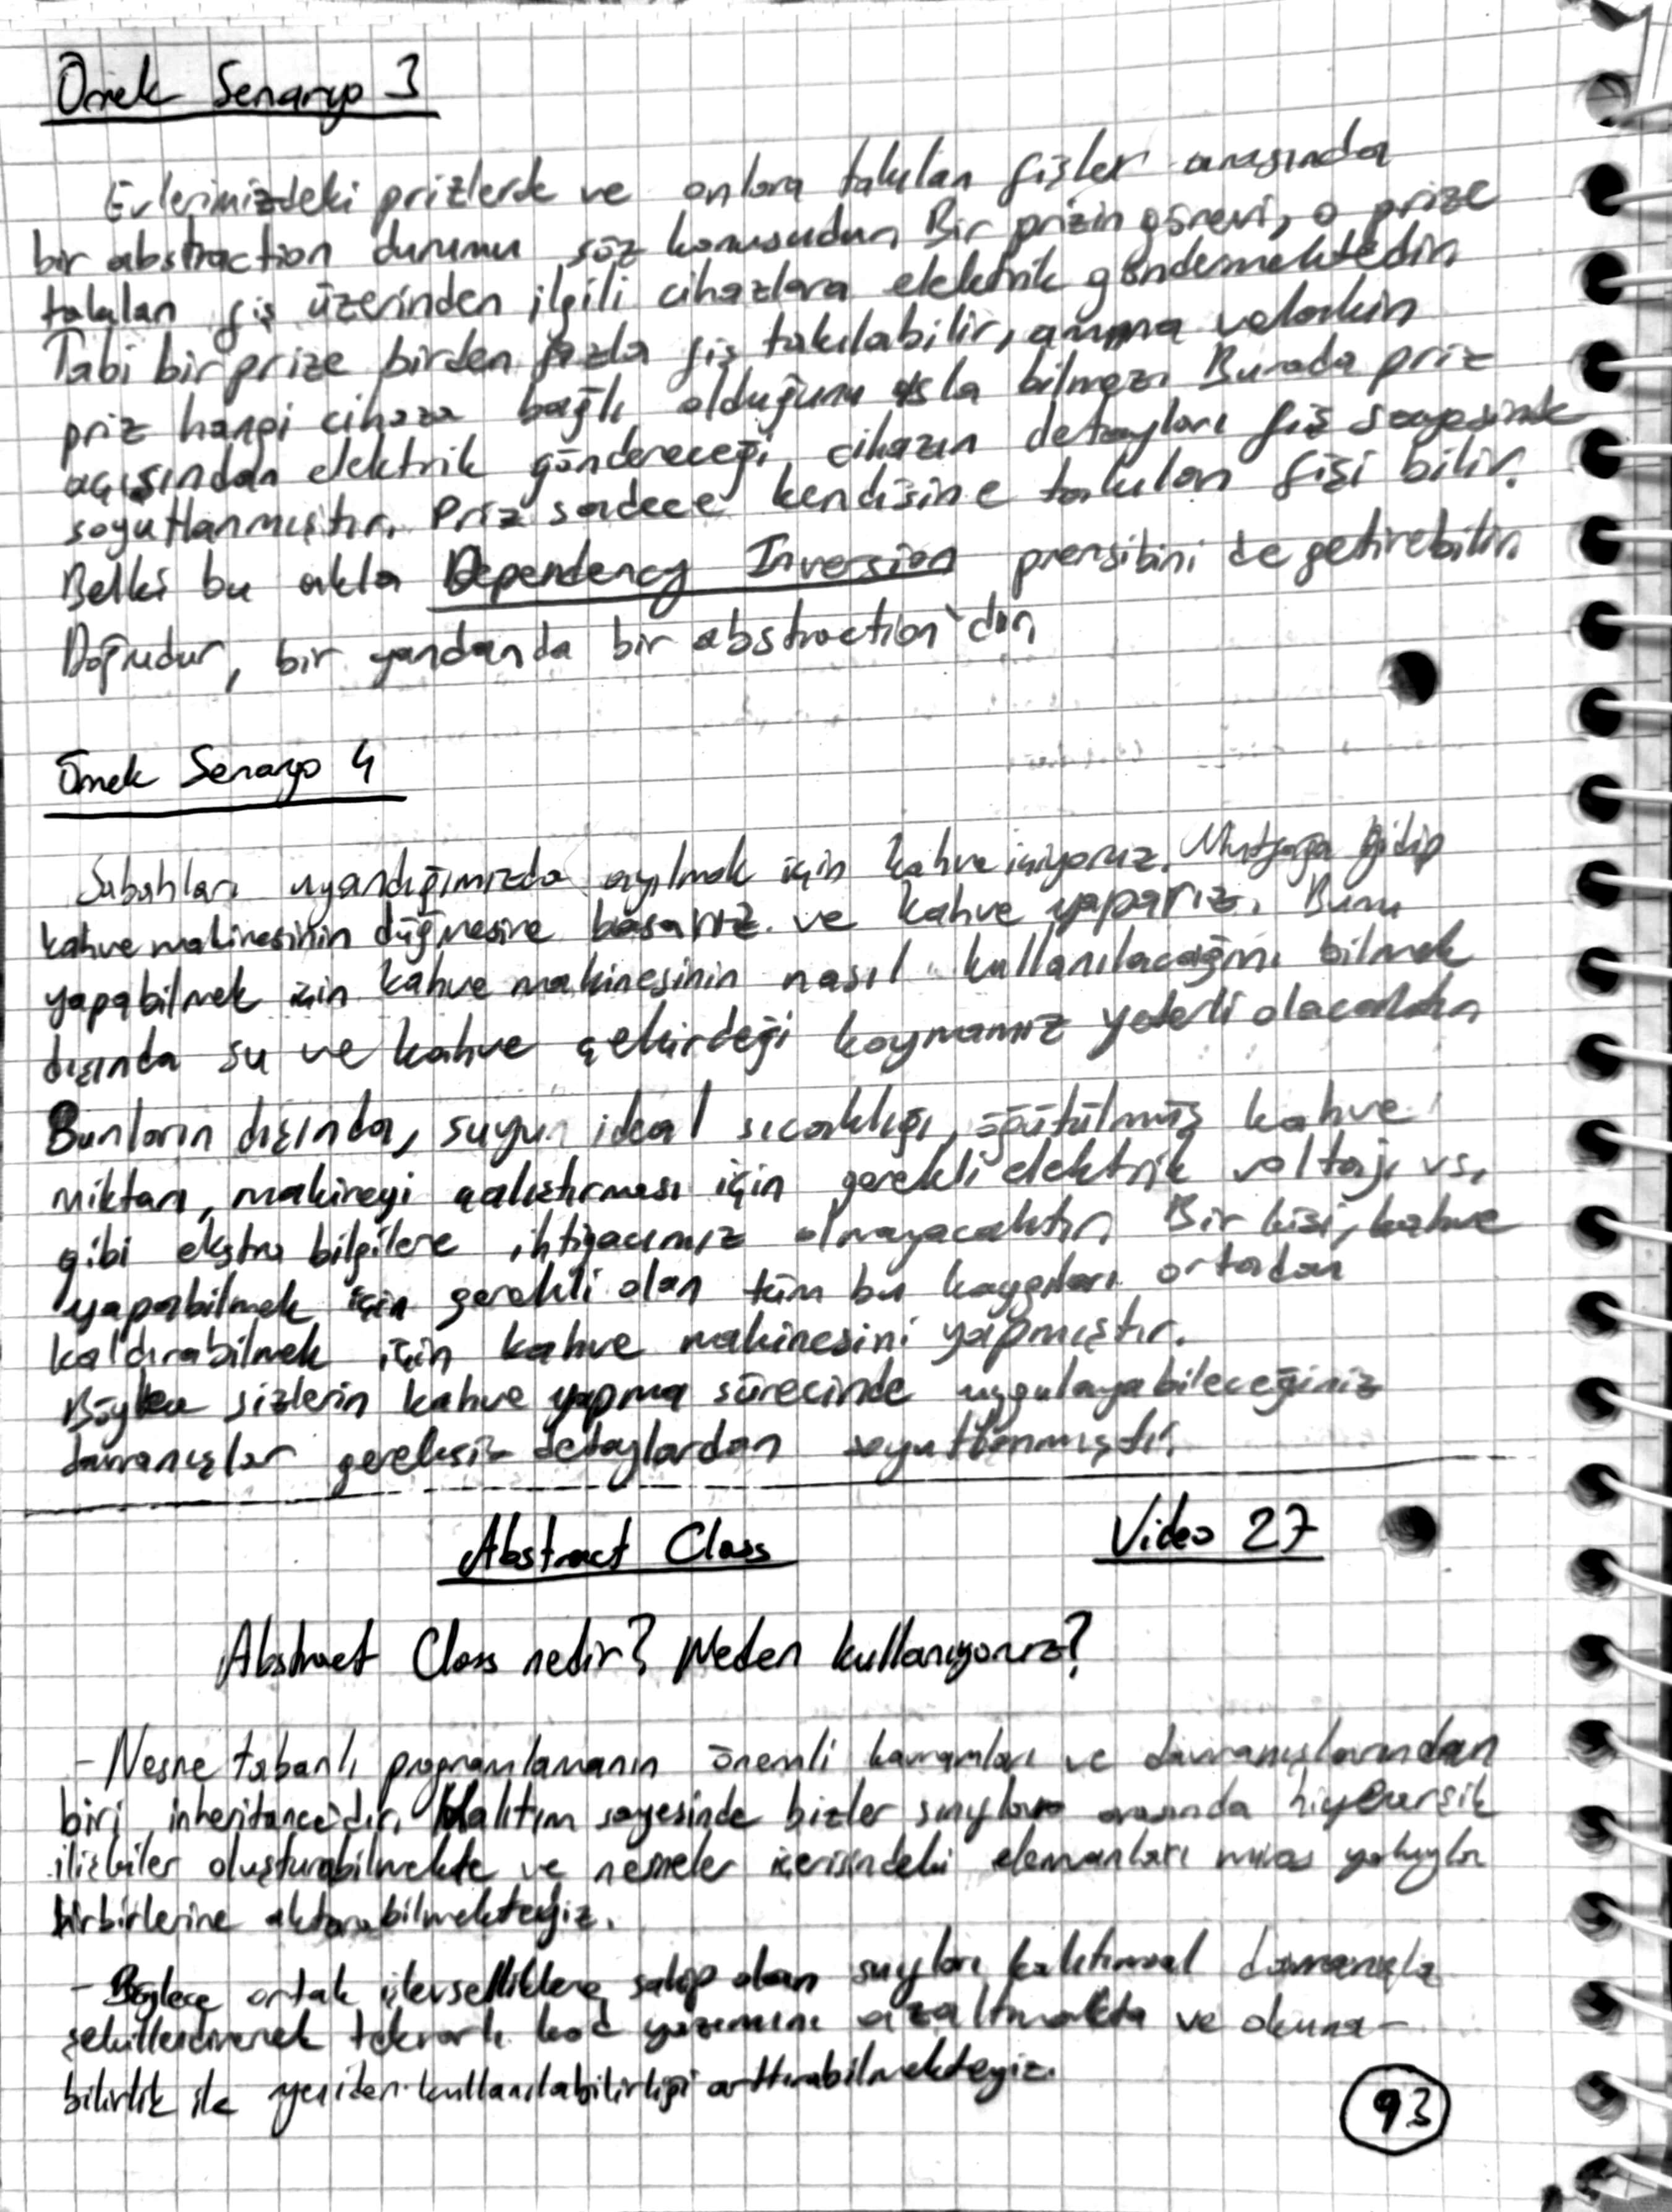 Örnek Senaryo 3
Evlerimizdeki prizlerde ve onlara takılan fişler arasında
bir abstraction durumu söz konusudur. Bir prizin görevi, o prize
takılan fiş üzerinden ilgili cihazlara elektrik göndermektedir.
Tabi bir prize birden fazla fiş takılabilir, amma velakin
priz hangi cihaza bağlı olduğunu asla bilmez. Burada priz
açısından elektrik göndereceği cihazın detayları fiş sayesinde
soyutlanmıştır. Priz sadece kendisine takılan fişi bilir.
Belki bu akla Dependency Inversion prensibini de getirebilir.
Doğrudur, bir yandan da bir abstraction'dır.
Örnek Senaryo 4
Sabahları uyandığımızda ayılmak için kahve içiyoruz. Mutfağa gidip
kahve makinesinin düğmesine basarız ve kahve yaparız. Bunu
yapabilmek için kahve makinesinin nasıl kullanılacağını bilmek
dışında su ve kahve çekirdeği koymamız yeterli olacaktır.
Bunların dışında, suyun ideal sıcaklığı, öğütülmüş kahve
miktarı, makineyi çalıştırması için gerekli elektrik voltajı vs.
gibi ekstra bilgilere ihtiyacımız olmayacaktır. Bir kişi, kahve
yapabilmek için gerekli olan tüm bu kaygıları ortadan
kaldırabilmek için kahve makinesini yapmıştır.
Böylece sizlerin kahve yapma sürecinde uygulayabileceğiniz
davranışlar gereksiz detaylardan soyutlanmıştır.
Abstract Class Video 27
Abstract Class nedir? Neden kullanıyoruz?
- Nesne tabanlı programlamanın önemli kavramları ve davranışlarından
biri inheritance'dır. Kalıtım sayesinde bizler sınıflar arasında hiyerarşik
ilişkiler oluşturabilmekte ve nesneler içerisindeki elemanları miras yoluyla
birbirlerine aktarabilmekteyiz.
- Böylece ortak işlevselliklere sahip olan sınıfları kalıtımsal davranışla
şekillendirerek tekrarlı kod yazımını azaltmakta ve okuna-
bilirlik ile yeniden kullanılabilirliği arttırabilmekteyiz.
93